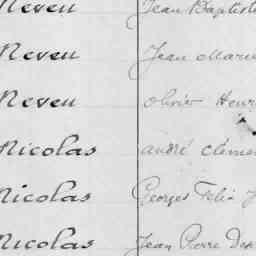 Neveu Jean Baptiste
Neveu Jean Marie
Neveu Olivier Henri
Nicolas André Clément
Nicolas Georges Felix
Nicolas Jean Pierre